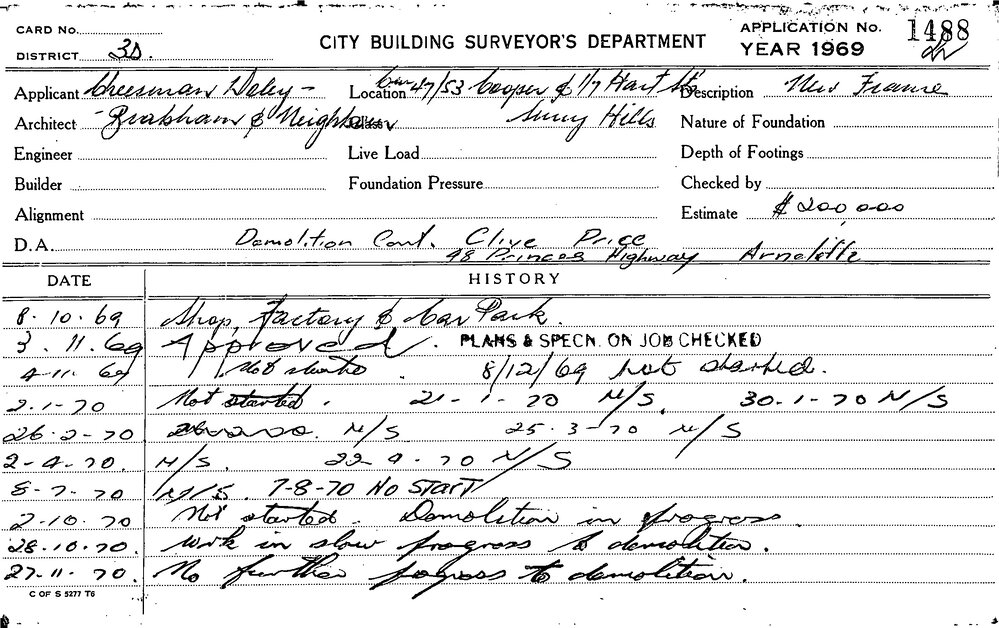 CARD No. APPLICATION No. 1488
CITY BUILDING SURVEYOR'S DEPARTMENT
DISTRICT 3D. YEAR 1969
Applicant Cheesman Doley - Location Cnr 47/53 Cooper & 1/7 Hart St Description New Frame
Architect Brabham & Neighbour Surry Hills Nature of Foundation
Engineer Live Load Depth of Footings
Builder Foundation Pressure Checked by
Alignment Estimate $200,000
D.A. Demolition Cont. Clive Price
48 Princes Highway Arncliffe
DATE HISTORY
8.10.69 Shop, Factory & Car Park.
3.11.69 Approved. PLANS & SPECN. ON JOB CHECKED
4.11.69 Not started. 8/12/69 not started.
2.1.70 Not started. 21-1-70 N/S. 30.1-70 N/S
26.2-70 N/S 25.3-70 N/S
2-4.70. N/S. 22.4.70 N/S
8-7.70 N/S. 7-8-70 NO START
2-10.70 Not started. Demolition in progress.
28.10.70. Work in slow progress to demolition.
27.11.70. No further pogress to demolition.
C OF S 5277 T6